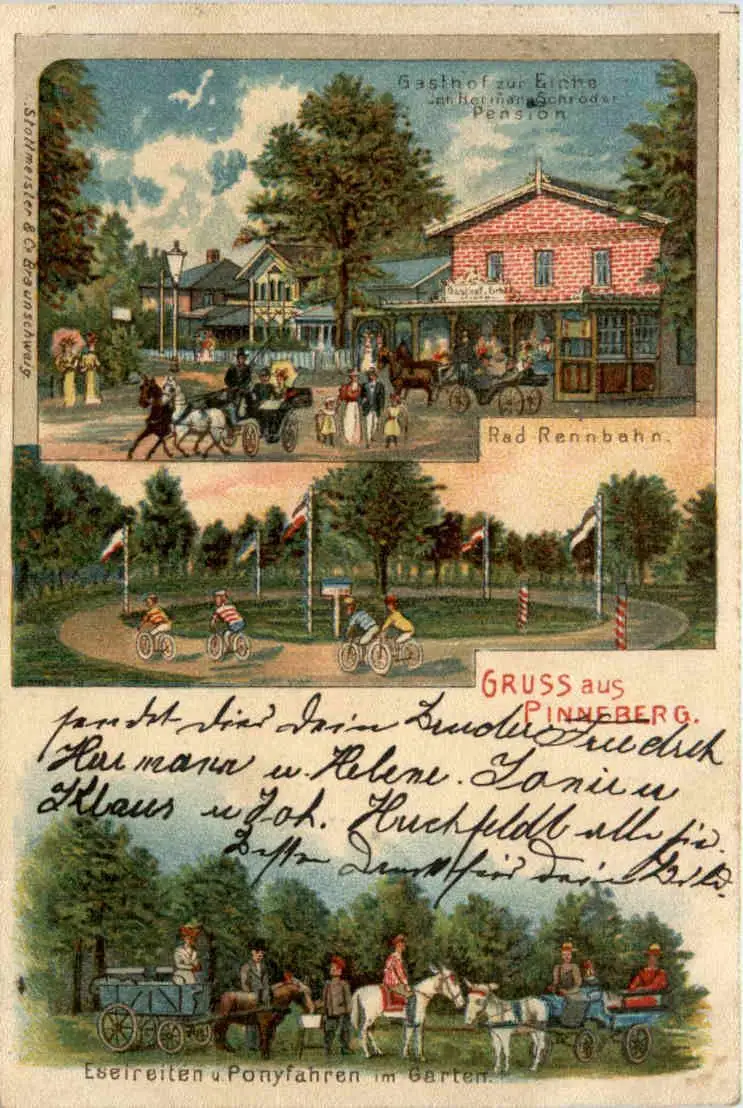 Gasthof zur Eiche
Inh. Hermann Schröder
Pension
Stollmeister & Co Braunschweig
Gasthof z. Eiche
Rad Rennbahn.
GRUSS aus
PINNEBERG.
sendet dies dein Bruder Friedrich
Harmann u. Helene. Tonie u
Klaus u Joh. Huchfeldt alle
Besten Dank für dein Bild.
Eselreiten u. Ponyfahren im Garten.